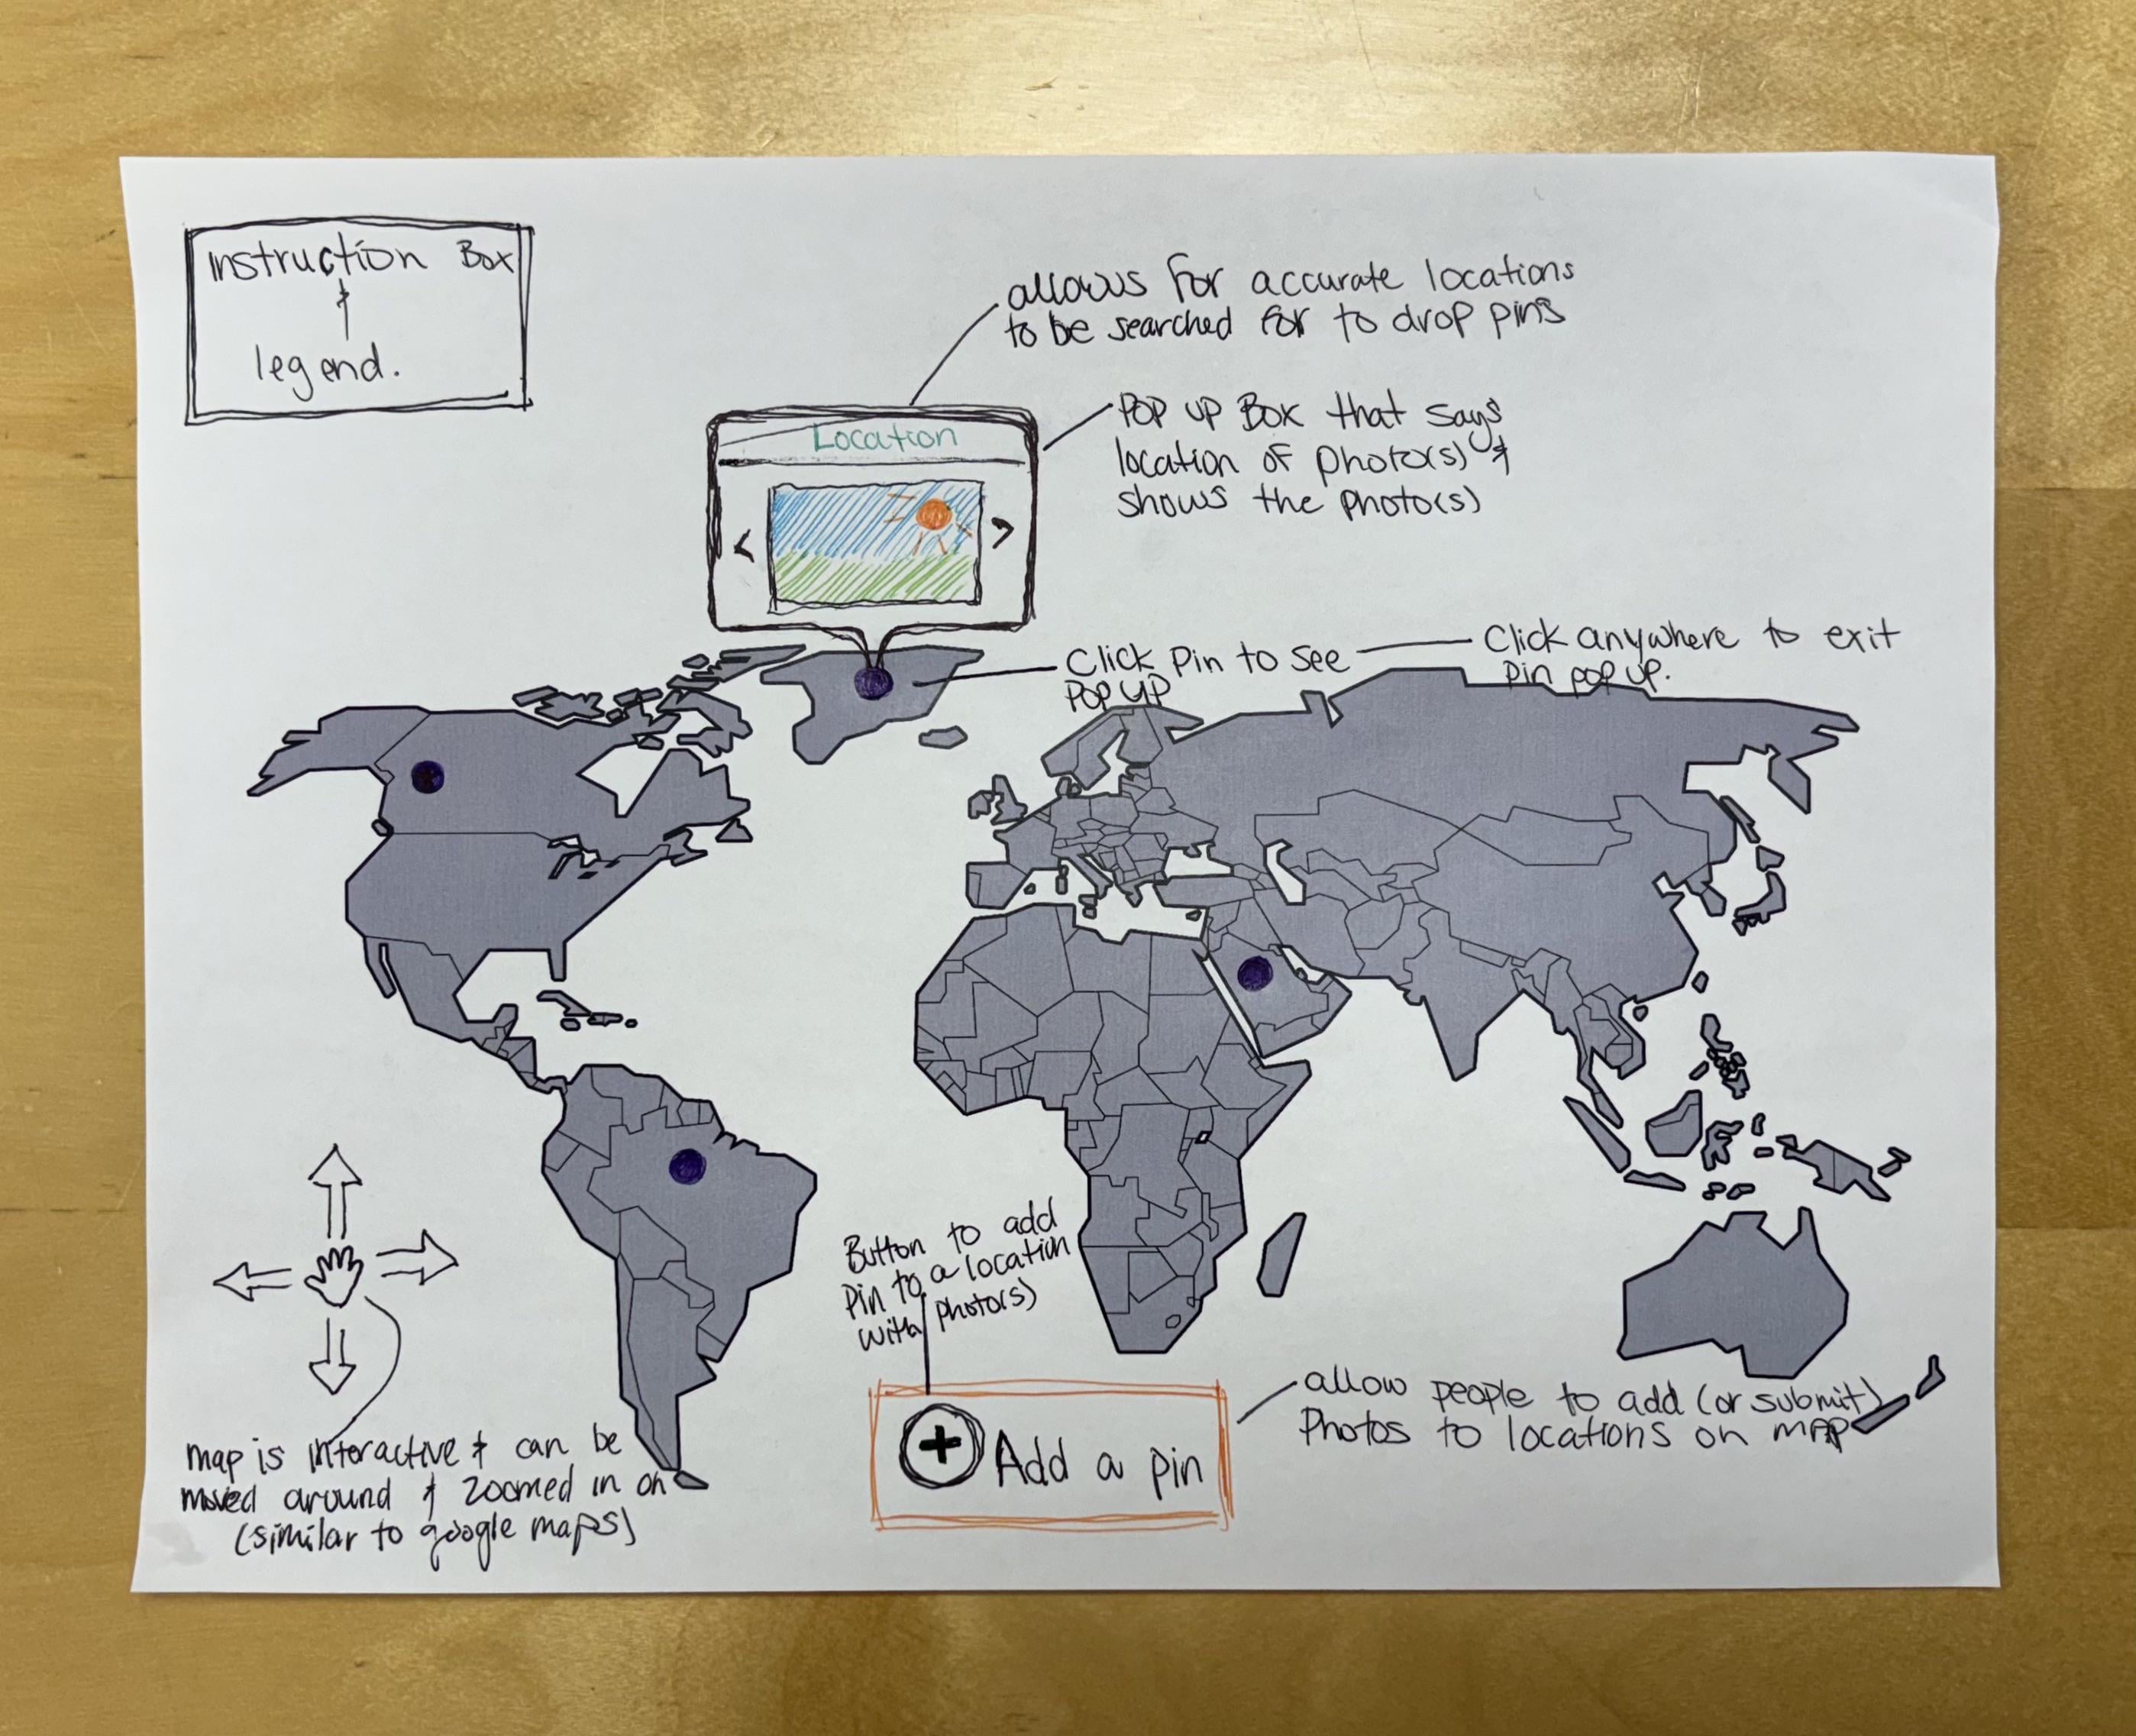 Instruction Box
&
legend.
allows for accurate locations
to be searched for to drop pins
Location
Pop up Box that says
location of photo(s) &
shows the photo(s)
< >
Click Pin to see
Pop up
Click anywhere to exit
pin pop up.
Button to add
Pin to a location
with photo(s)
+ Add a pin
allow people to add (or submit)
Photos to locations on map
map is interactive & can be
moved around & zoomed in on
(similar to google maps)